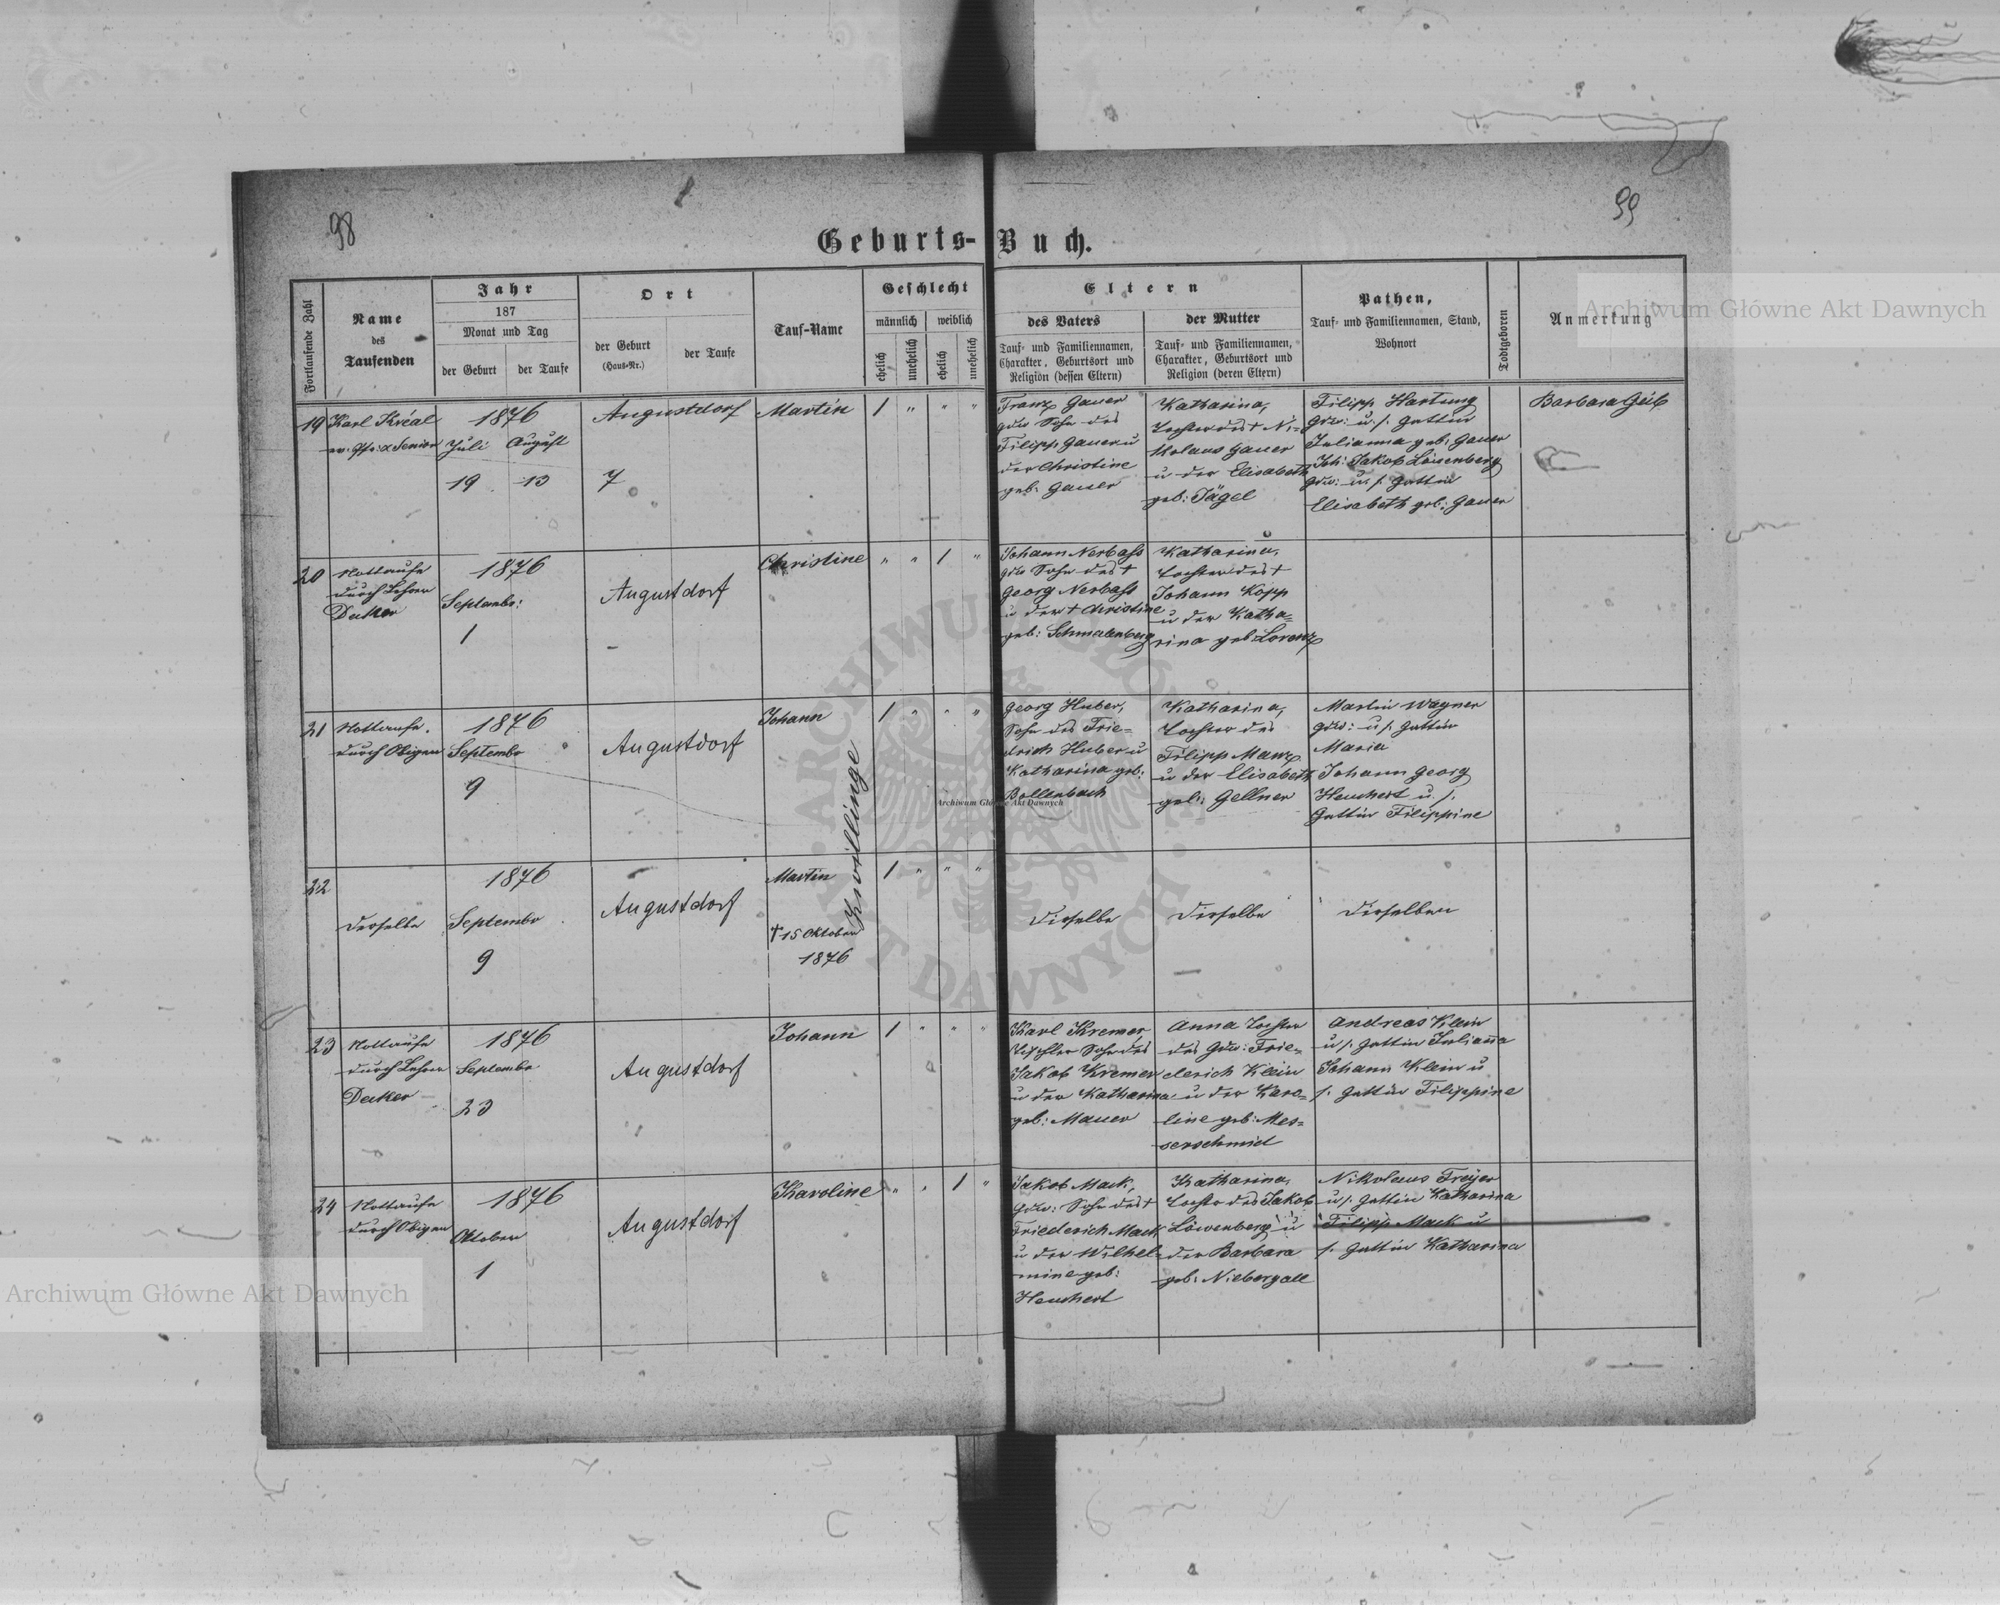 98
99
Geburts-Buch.
Fortlaufende Zahl
Name
des
Taufenden
Jahr
187
Monat und Tag
der Geburt
der Taufe
Ort
der Geburt
(Haus-Nr.)
der Taufe
Tauf-Name
Geschlecht
männlich
weiblich
ehelich
unehelich
ehelich
unehelich
Eltern
des Vaters
Tauf- und Familiennamen,
Charakter, Geburtsort und
Religion (dessen Eltern)
der Mutter
Tauf- und Familiennamen,
Charakter, Geburtsort und
Religion (deren Eltern)
Pathen,
Tauf- und Familiennamen, Stand,
Wohnort
Todtgeboren
Anmerkung
19
Karl Kréal
ev. Pfr. & Senior
1876
Juli August
19 13
Augustdorf
7
Martin
1 " " "
Franz Gauer
Gdw Sohn des
Filipp Gauer u
der Christine
geb: Gauer
Katharina,
Tochter des † Ni=
kolaus Gauer
u der Elisabeth
geb: Jägel
Filipp Hartung
Gdw: u. s. Gattin
Julianna geb: Gauer
Joh: Jakob Löwenberg
Gdw: u. s. Gattin
Elisabeth geb: Gauer
Barbara Geib
20
Nottaufe
durch Lehrer
Decker
1876
Septembr:
1
Augustdorf
Christine
" " 1 "
Johann Nerbass
Gdw Sohn des †
Georg Nerbass
u der † Christine
geb: Schmalenberg
Katharina,
Tochter des †
Johann Kopp
u der Katha=
rina geb: Lorenz
21
Nottaufe
durch Obigen
1876
Septembr
9
Augustdorf
Johann
Zwillinge
1 " " "
Georg Huber,
Sohn des Frie=
drich Huber u
Katharina geb:
Bollenbach
Katharina,
Tochter des
Filipp Manz
u der Elisabeth
geb: Gellner
Martin Wagner
Gdw: u s. Gattin
Maria
Johann Georg
Heuchert u. s.
Gattin Filippine
22
derselbe
1876
Septembr
9
Augustdorf
Martin
† 15 Oktober
1876
1 " " "
Dieselbe
Dieselbe
Dieselben
23
Nottaufe
durch Lehrer
Decker
1876
Septembr
23
Augustdorf
Johann
1 " " "
Karl Kremer,
Tischler Sohn des
Jakob Kremer
u der Katharina
geb: Mauer
Anna Tochter
des Gdw: Frie=
derich Klein
u der Karo=
line geb: Mes=
serschmid
Andreas Klein
u s. Gattin Julianna
Johann Klein u
s. Gattin Filippine
24
Nottaufe
durch Obigen
1876
Oktober
1
Augustdorf
Karoline
" " 1 "
Jakob Mack,
Gdw: Sohn des †
Friederich Mack
u der Wilhel=
mine geb:
Heuchert
Katharina,
Tochter des Jakob
Löwenberg u
der Barbara
geb: Niebergall
Nikolaus Freyer
u s. Gattin Katharina
Filipp Mack u
s. Gattin Katharina
Archiwum Główne Akt Dawnych
Archiwum Główne Akt Dawnych
Archiwum Główne Akt Dawnych
ARCHIWUM GŁÓWNE AKT DAWNYCH